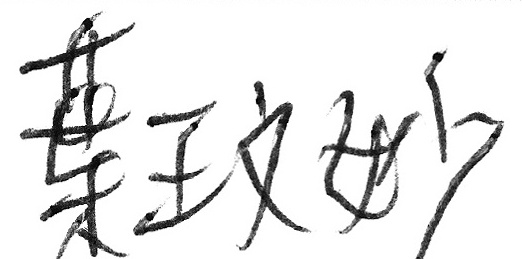 葉玟妙